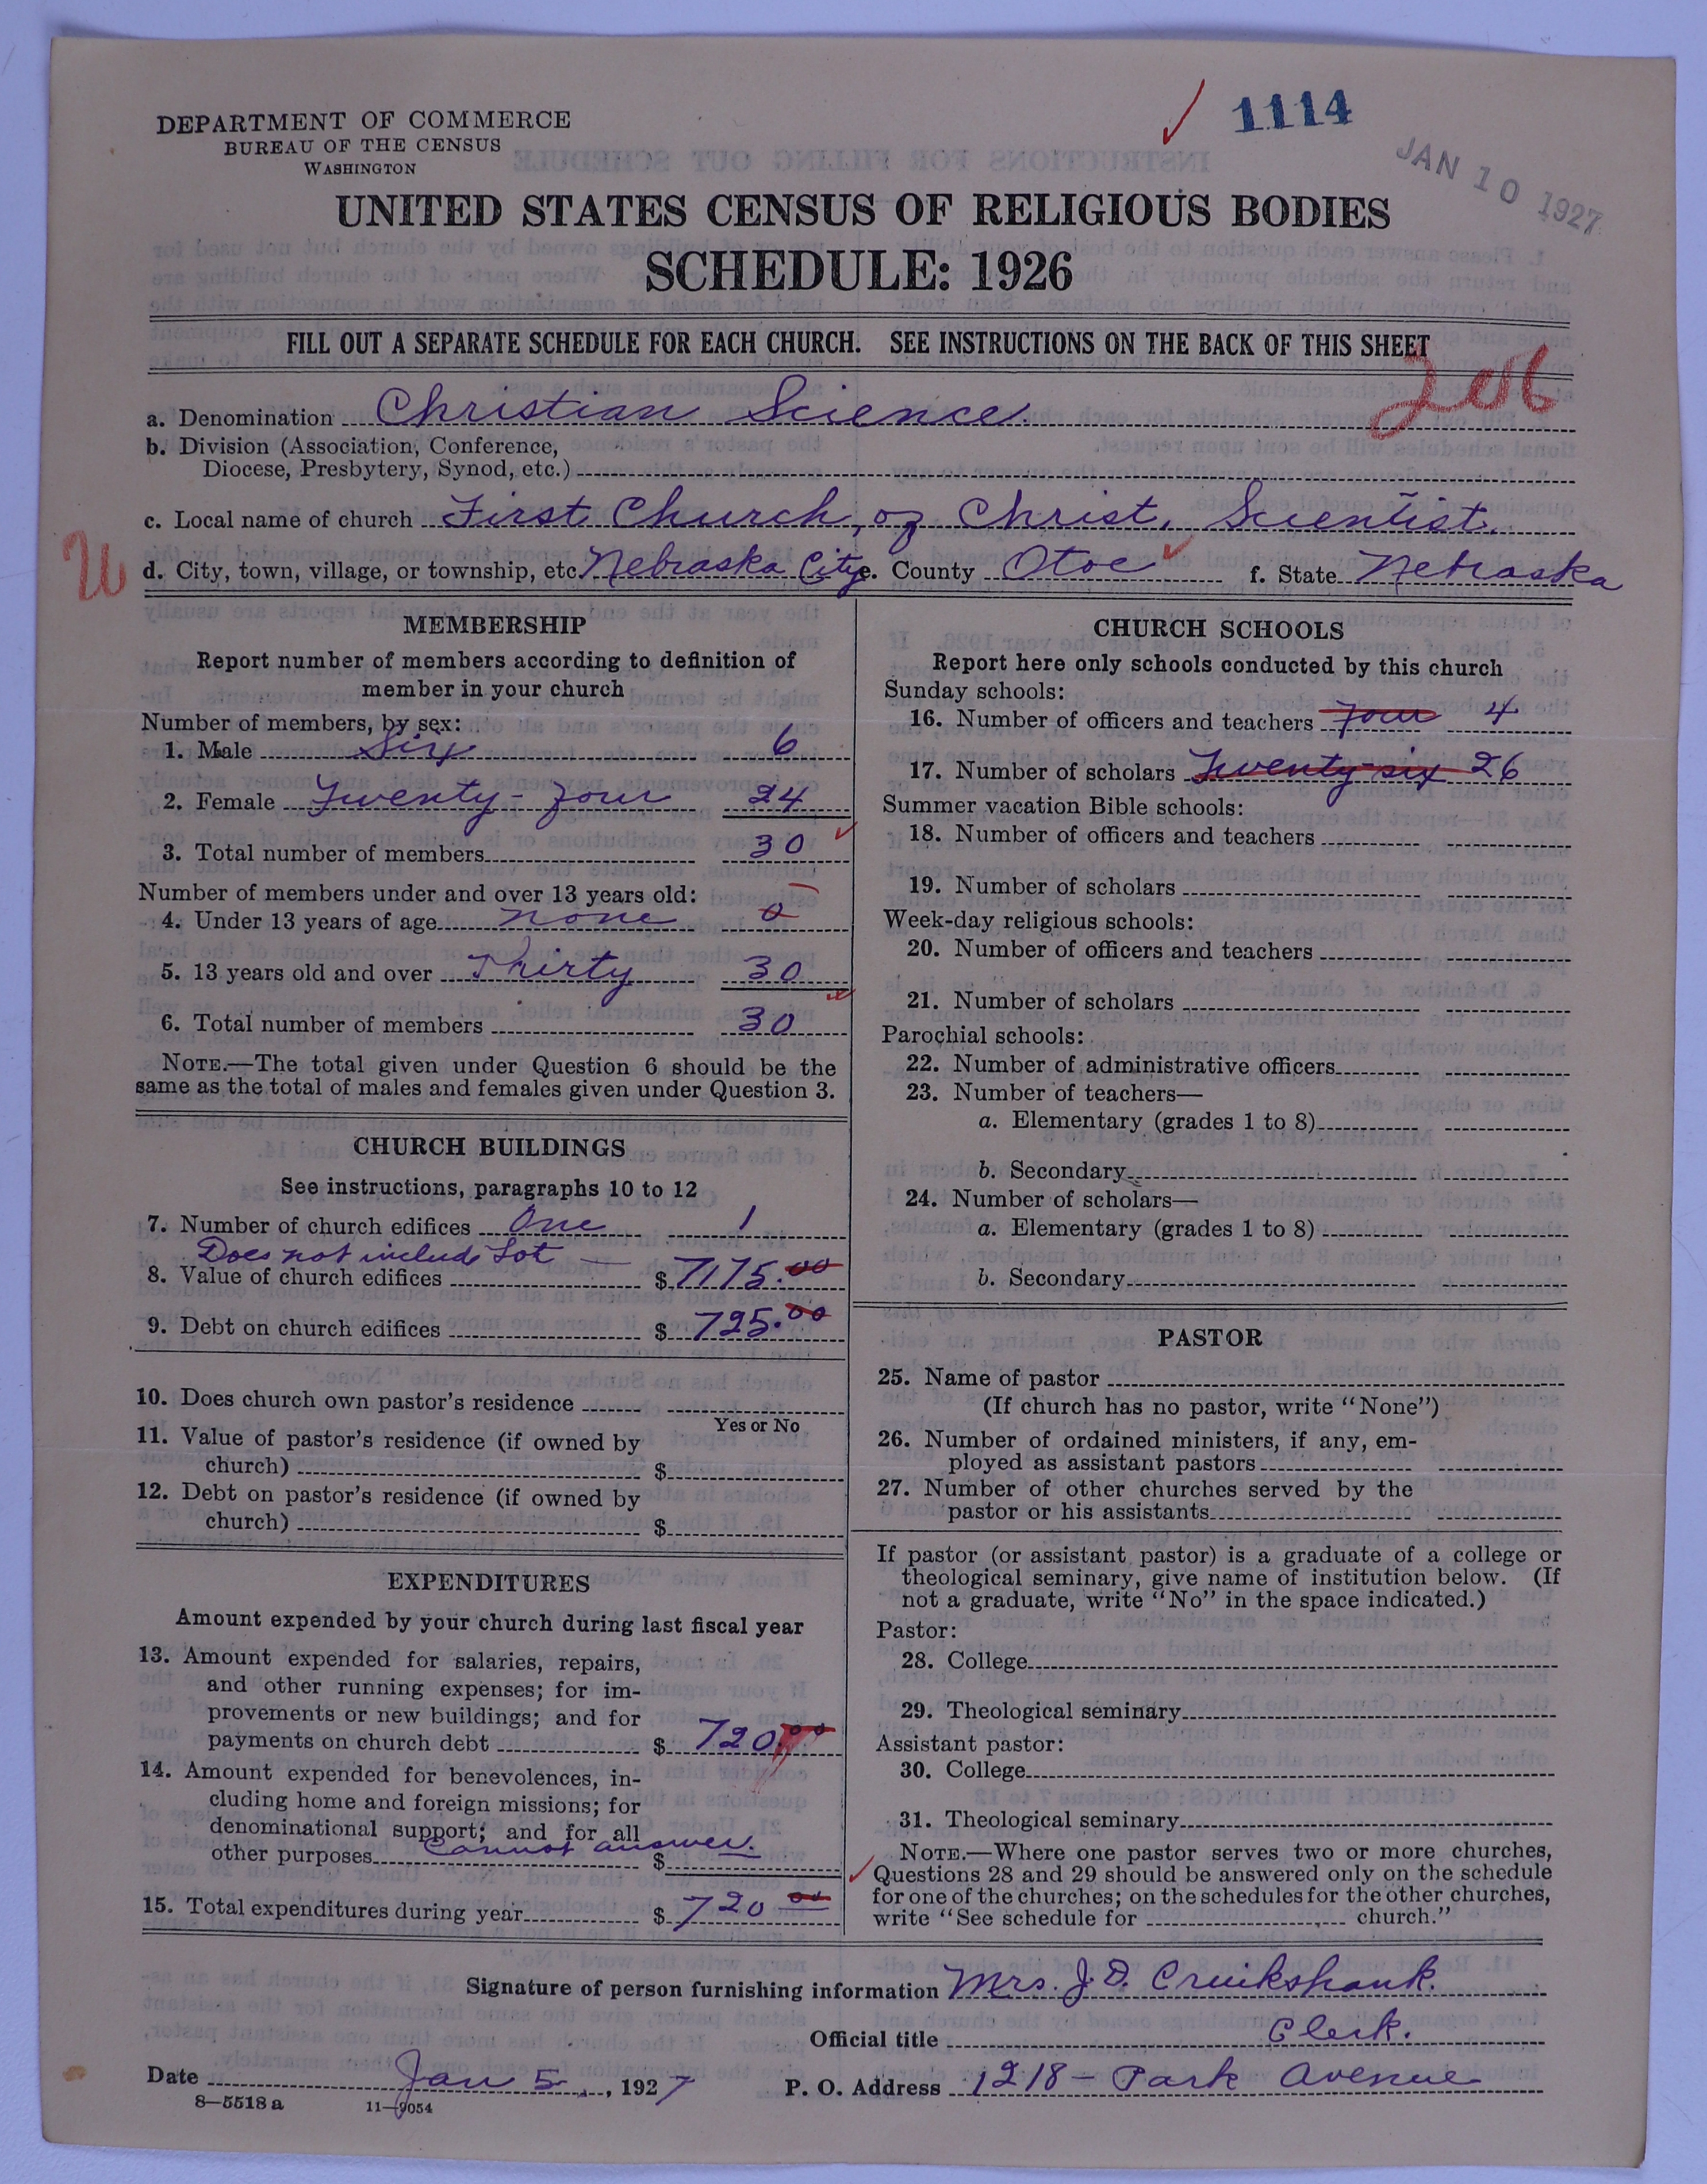 1114
JAN 10 1927
DEPARTMENT OF COMMERCE
BUREAU OF THE CENSUS
WASHINGTON
UNITED STATES CENSUS OF RELIGIOUS BODIES
SCHEDULE: 1926
FILL OUT A SEPARATE SCHEDULE FOR EACH CHURCH. SEE INSTRUCTIONS ON THE BACK OF THIS SHEET
206
a. Denomination Christian Science.
b. Division (Association, Conference,
Diocese, Presbytery, Synod, etc.)
c. Local name of church First Church, of Christ, Scientist.
d. City, town, village, or township, etc. Nebraska City e. County Otoe f. State Nebraska
MEMBERSHIP
Report number of members according to definition of
member in your church
Number of members, by sex:
1. Male Six 6
2. Female Twenty-four 24
3. Total number of members 30
Number of members under and over 13 years old:
4. Under 13 years of age none 0
5. 13 years old and over Thirty 30
6. Total number of members 30
NOTE.—The total given under Question 6 should be the
same as the total of males and females given under Question 3.
CHURCH BUILDINGS
See instructions, paragraphs 10 to 12
7. Number of church edifices One 1
Does not include Lot
8. Value of church edifices $ 7175.00
9. Debt on church edifices $ 725.00
10. Does church own pastor's residence
Yes or No
11. Value of pastor's residence (if owned by
church) $
12. Debt on pastor's residence (if owned by
church) $
EXPENDITURES
Amount expended by your church during last fiscal year
13. Amount expended for salaries, repairs,
and other running expenses; for im-
provements or new buildings; and for
payments on church debt $ 720.00
14. Amount expended for benevolences, in-
cluding home and foreign missions; for
denominational support; and for all
other purposes Cannot answer. $
15. Total expenditures during year $ 720 00
CHURCH SCHOOLS
Report here only schools conducted by this church
Sunday schools:
16. Number of officers and teachers Four 4
17. Number of scholars Twenty-six 26
Summer vacation Bible schools:
18. Number of officers and teachers
19. Number of scholars
Week-day religious schools:
20. Number of officers and teachers
21. Number of scholars
Parochial schools:
22. Number of administrative officers
23. Number of teachers—
a. Elementary (grades 1 to 8)
b. Secondary
24. Number of scholars—
a. Elementary (grades 1 to 8)
b. Secondary
PASTOR
25. Name of pastor
(If church has no pastor, write "None")
26. Number of ordained ministers, if any, em-
ployed as assistant pastors
27. Number of other churches served by the
pastor or his assistants
If pastor (or assistant pastor) is a graduate of a college or
theological seminary, give name of institution below. (If
not a graduate, write "No" in the space indicated.)
Pastor:
28. College
29. Theological seminary
Assistant pastor:
30. College
31. Theological seminary
NOTE.—Where one pastor serves two or more churches,
Questions 28 and 29 should be answered only on the schedule
for one of the churches; on the schedules for the other churches,
write "See schedule for church."
Signature of person furnishing information Mrs. J. D. Cruikshank.
Official title Clerk.
Date Jan 5, 1927 P. O. Address 1218 - Park Avenue
8—5518 a 11—9054